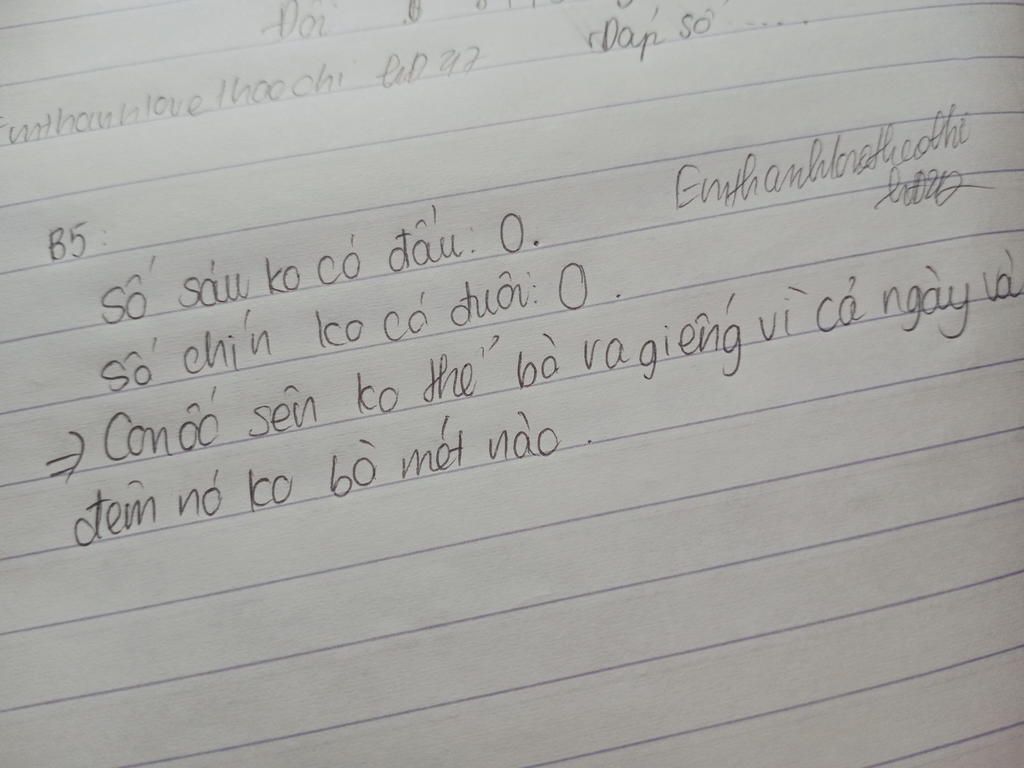 Đôi
Đáp số ......
Emthanhlove thaochi
B5:
Số sáu ko có đầu: 0.
Số chín ko có đuôi: 0.
=> Con ốc sên ko thể bò ra giếng vì cả ngày và
đêm nó ko bò mét nào.